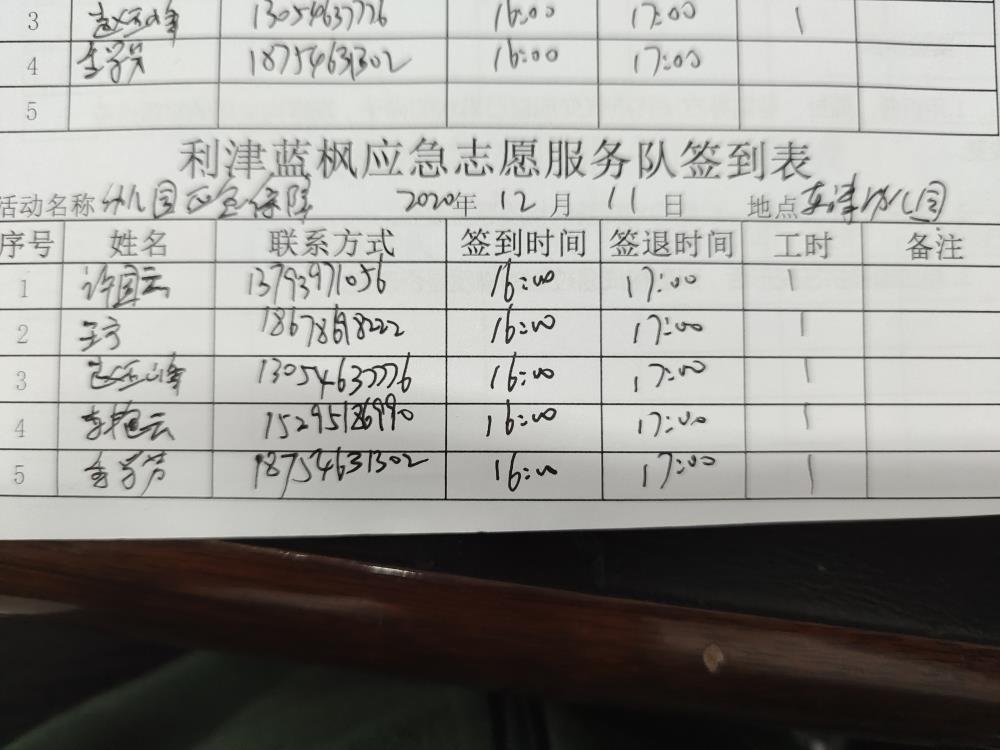 3 赵玉峰 13054637776 16:00 17:00 1
4 李学芳 18754631302 16:00 17:00
5
利津蓝枫应急志愿服务队签到表
活动名称 幼儿园安全保障 2020年 12 月 11 日 地点 东津幼儿园
序号 姓名 联系方式 签到时间 签退时间 工时 备注
1 许国云 13793971056 16:00 17:00 1
2 王方 18678618222 16:00 17:00 1
3 赵玉峰 13054637776 16:00 17:00 1
4 李艳云 15295186990 16:00 17:00 1
5 李学芳 18754631302 16:00 17:00 1